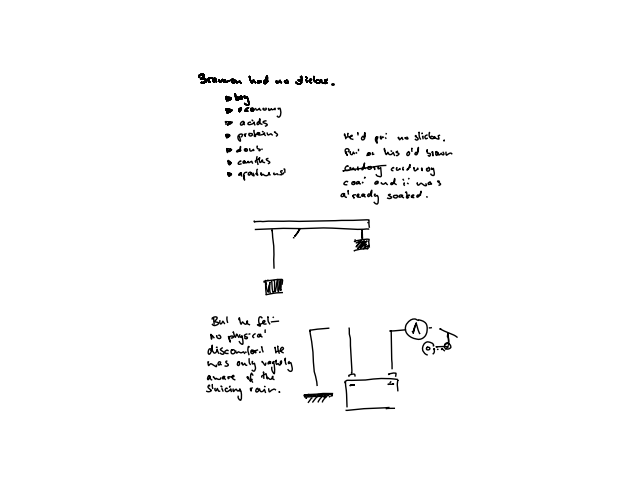 Brennan had no slicker.
▸ boy
▸ economy
▸ acids
▸ proteins
▸ dont
▸ candles
▸ apartment
He'd got no slicker.
Put on his old brown
corduroy
coat and it was
already soaked.
But he felt
no physical
discomfort. He
was only vaguely
aware of the
sluicing rain.
A